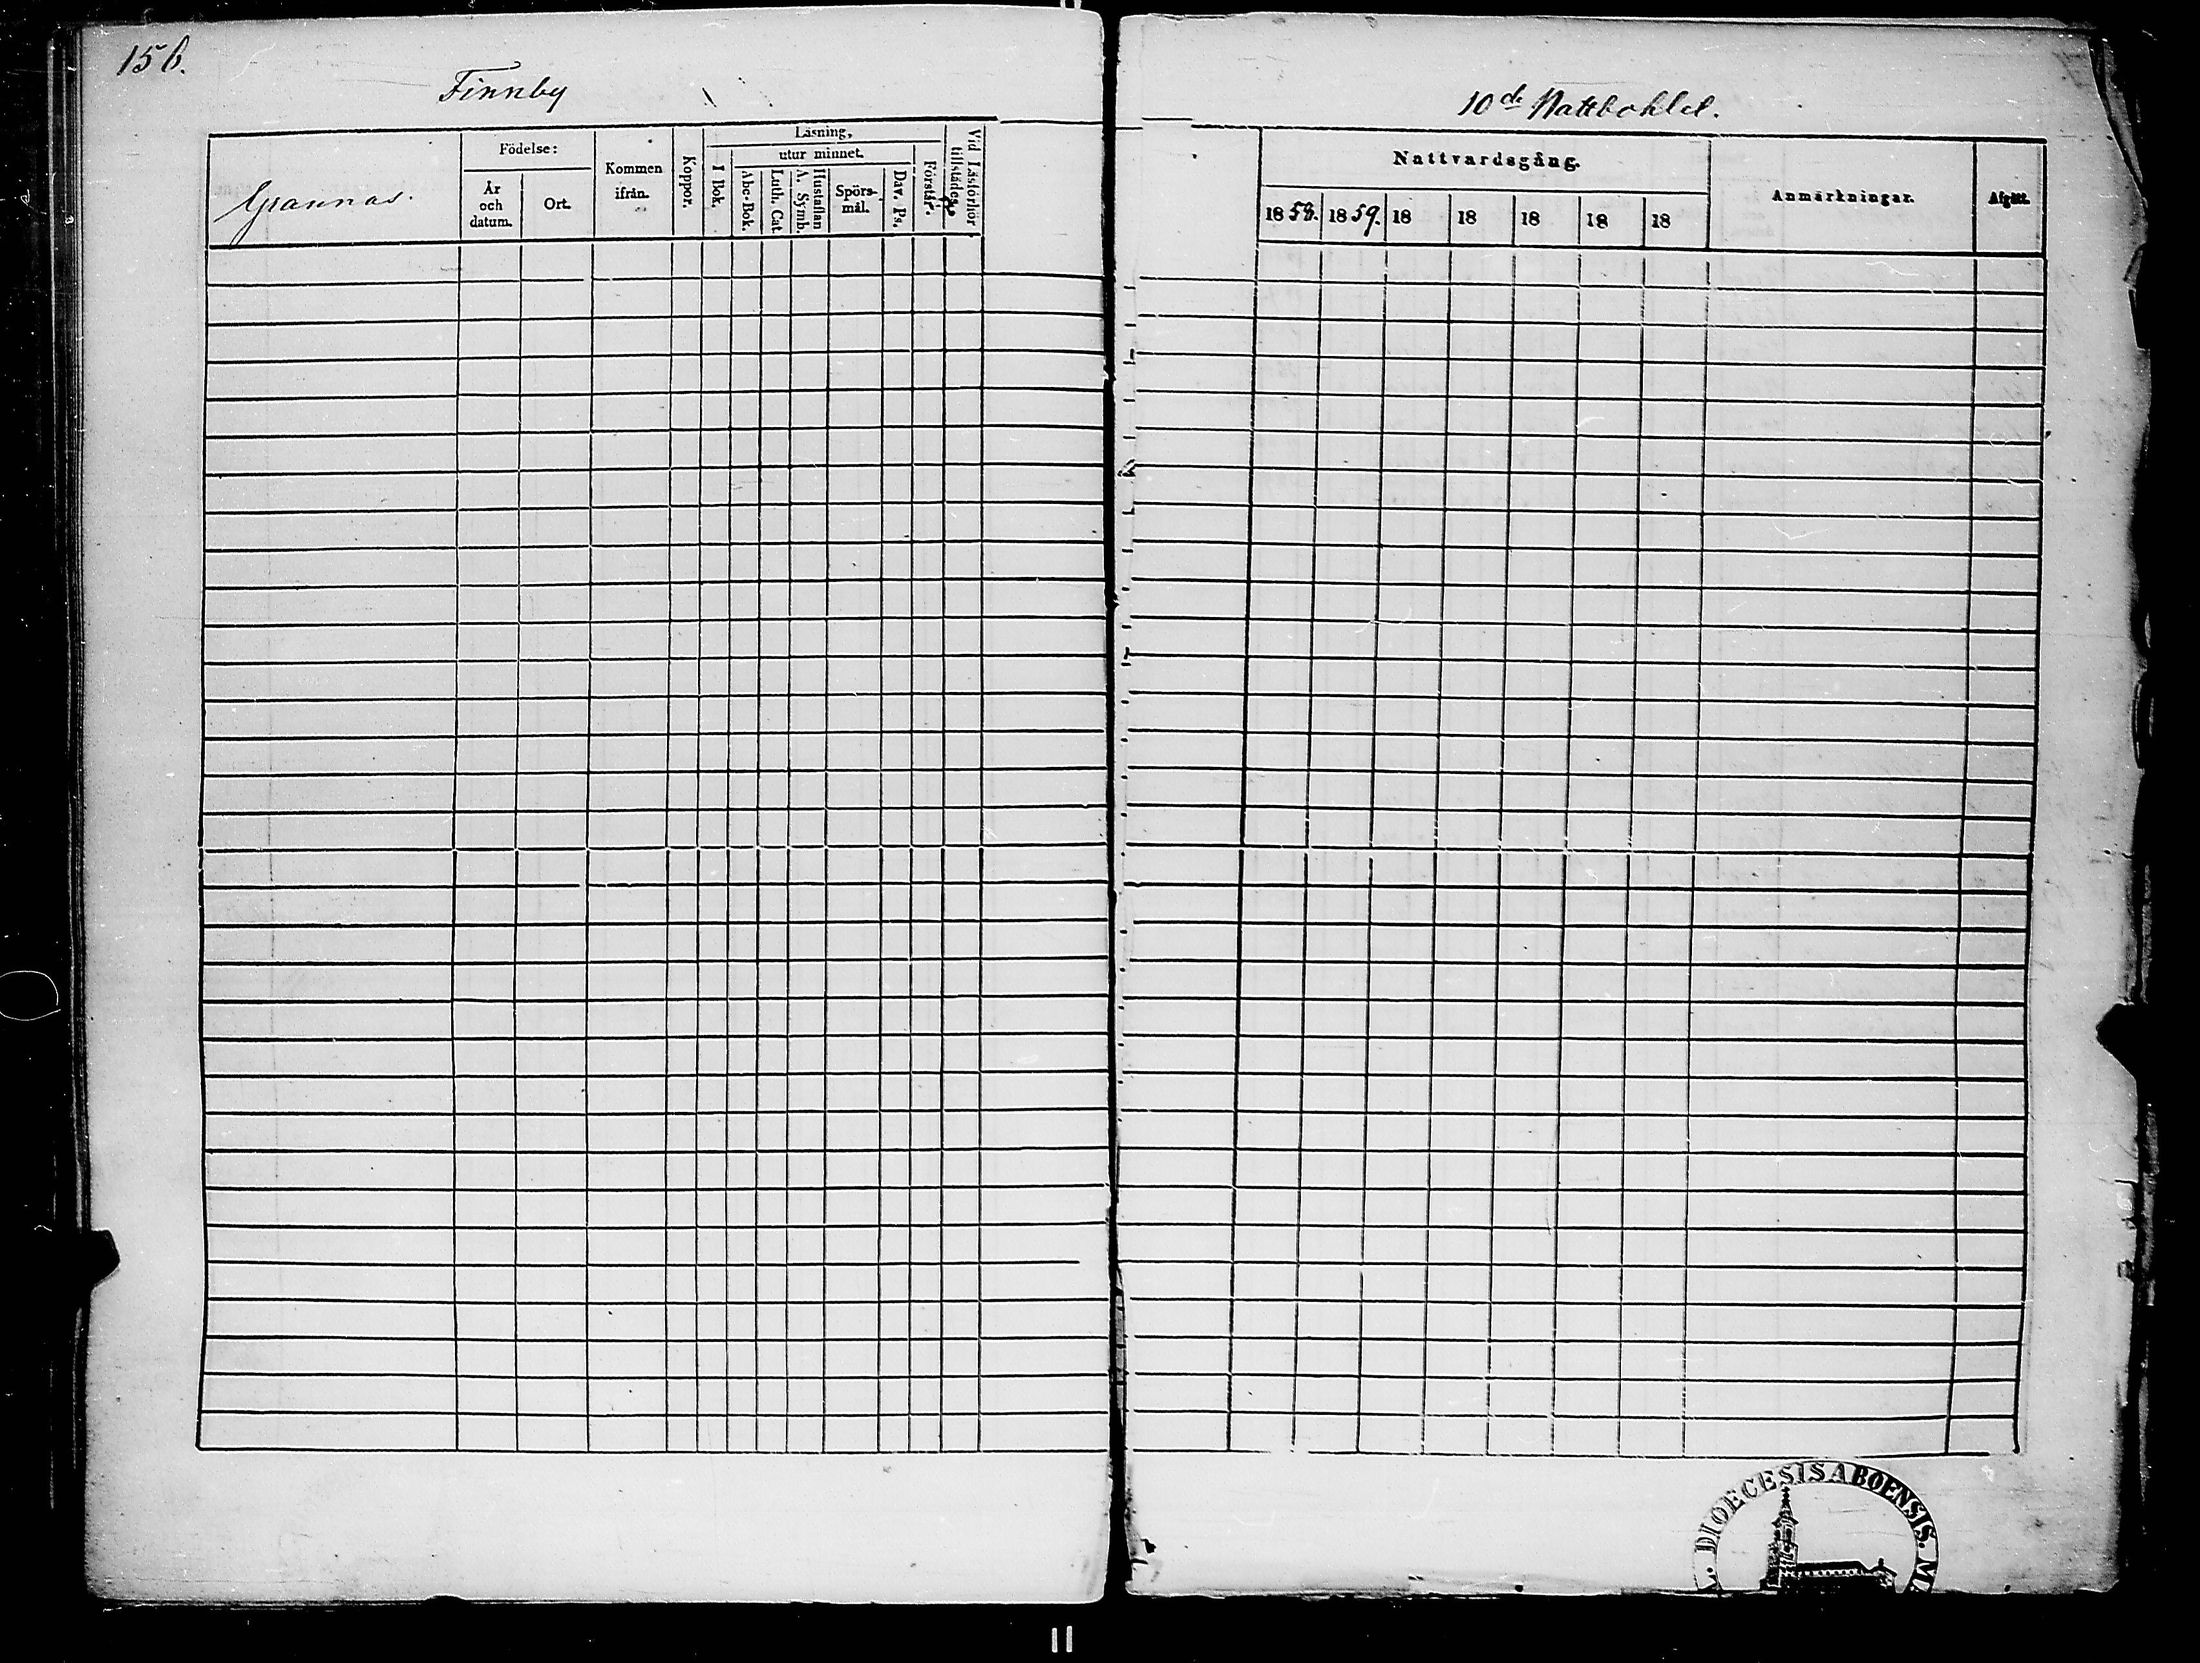 156.
Finnby
10de Nattbohlel.
Grannas.
Födelse:
År
och
datum.
Ort.
Kommen
ifrån.
Koppor.
Läsning,
I Bok.
utur minnet.
Abc-Bok.
Luth. Cat.
Hustaflan
A. Symb.
Spörs-
mål.
Dav. Ps.
Förstår.
Vid Läsförhör
tillstädes.
Nattvardsgång.
1858. 1859. 18 18 18 18 18
Anmärkningar.
Afgått.
DIOECESIS ABOENSIS. M.